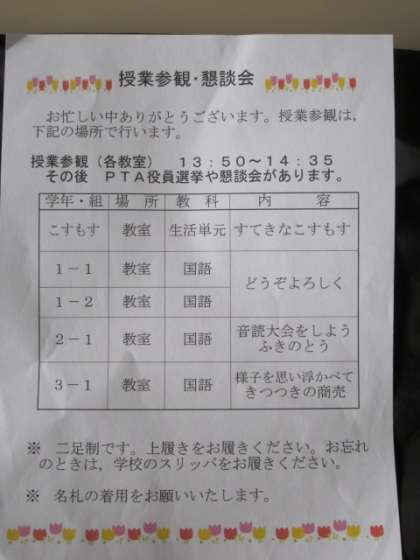 授業参観・懇談会
お忙しい中ありがとうございます。授業参観は，
下記の場所で行います。
授業参観（各教室）　１３：５０～１４：３５
その後　ＰＴＡ役員選挙や懇談会があります。
学年・組　場　所　教　科　内　容
こすもす　教室　生活単元　すてきなこすもす
１－１　教室　国語　どうぞよろしく
１－２　教室　国語
２－１　教室　国語　音読大会をしよう
ふきのとう
３－１　教室　国語　様子を思い浮かべて
きつつきの商売
※　二足制です。上履きをお履きください。お忘れ
のときは，学校のスリッパをお履きください。
※　名札の着用をお願いいたします。